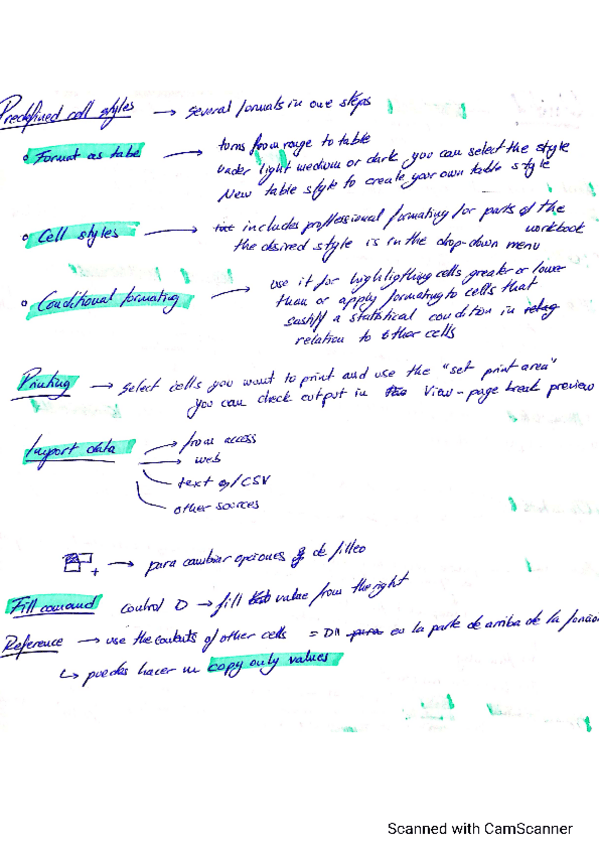 Predefined cell styles → several formats in one steps
o Format as table → turns from range to table
under light medium or dark you can select the style
New table style to create your own table style
o Cell styles → includes proffessional formating for parts of the workbook
the desired style is in the drop-down menu
o Conditional formating → use it for highligthing cells greater or lower
than or apply formating to cells that
satisfy a statistical condition in
relation to other cells
Printing → select cells you want to print and use the "set print area"
you can check output in View - page break preview
Import data → from access
→ web
text or/CSV
other sources
→ para cambiar opciones de filleo
Fill comand control D → fill value from the right
Reference → use the contents of other cells = D11 en la parte de arriba de la
↳ puedes hacer un copy only values
Scanned with CamScanner